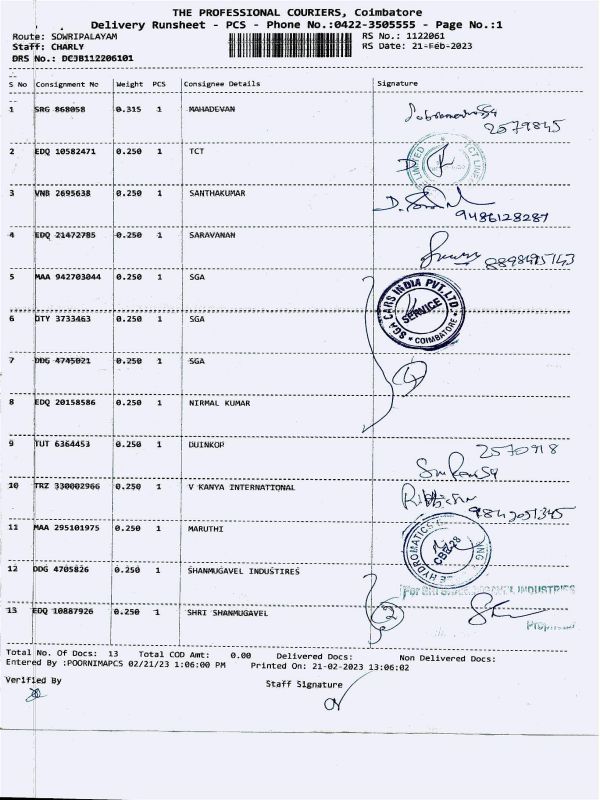 THE PROFESSIONAL COURIERS, Coimbatore
Delivery Runsheet - PCS - Phone No.:0422-3505555 - Page No.:1
Route: SOWRIPALAYAM RS No.: 1122061
Staff: CHARLY RS Date: 21-Feb-2023
DRS No.: DCJB112206101
S No Consignment No Weight PCS Consignee Details Signature
1 SRG 868058 0.315 1 MAHADEVAN
2579845
2 EDQ 10582471 0.250 1 TCT
3 VNB 2695638 0.250 1 SANTHAKUMAR
9486128287
4 EDQ 21472785 0.250 1 SARAVANAN
5 MAA 942703044 0.250 1 SGA
SGA CARS INDIA PVT.LTD.
SERVICE
* COIMBATORE *
6 OTY 3733463 0.250 1 SGA
7 DDG 4745021 0.250 1 SGA
4
8 EDQ 20158586 0.250 1 NIRMAL KUMAR
9 TUT 6364453 0.250 1 DUINKOP
2570918
10 TRZ 330002966 0.250 1 V KANYA INTERNATIONAL
9842051345
11 MAA 295101975 0.250 1 MARUTHI
HYDROMATICS
CBE-28
12 DDG 4705826 0.250 1 SHANMUGAVEL INDUSTIRES
13 EDQ 10887926 0.250 1 SHRI SHANMUGAVEL
2
Total No. Of Docs: 13 Total COD Amt: 0.00 Delivered Docs: Non Delivered Docs:
Entered By :POORNIMAPCS 02/21/23 1:06:00 PM Printed On: 21-02-2023 13:06:02
Verified By Staff Signature